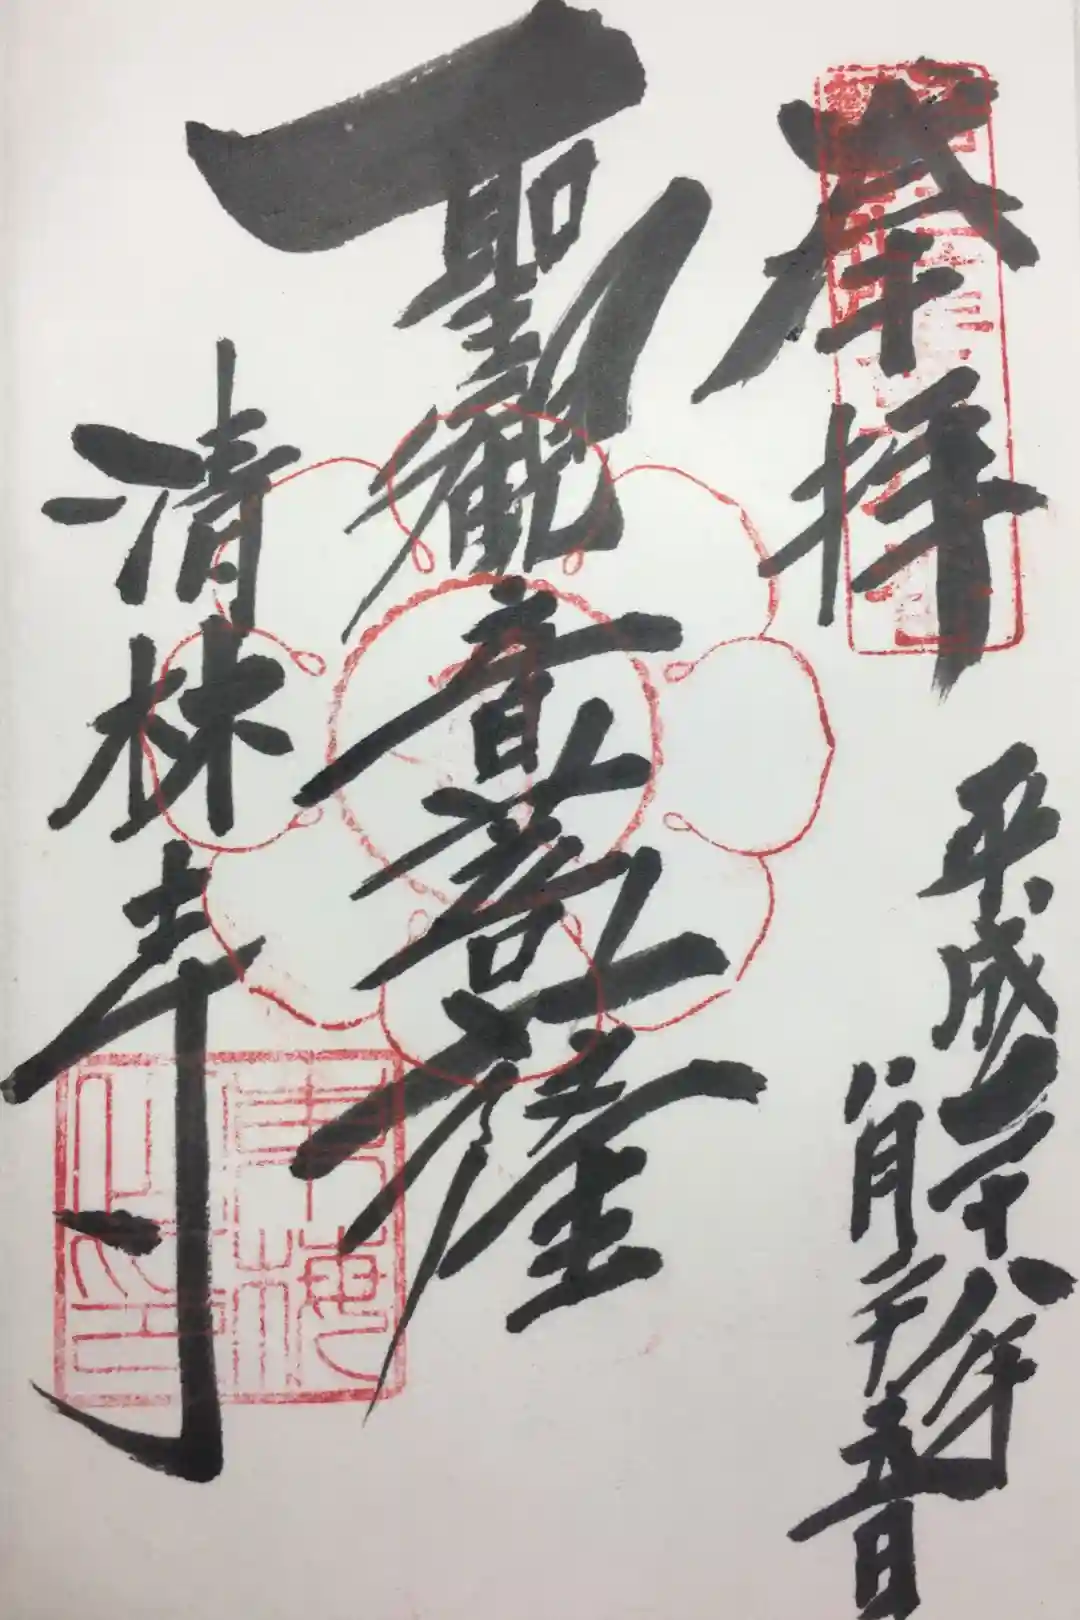 奉拝
平成二十八年
八月二十五日
聖観音菩薩
清林寺
東梅
山印